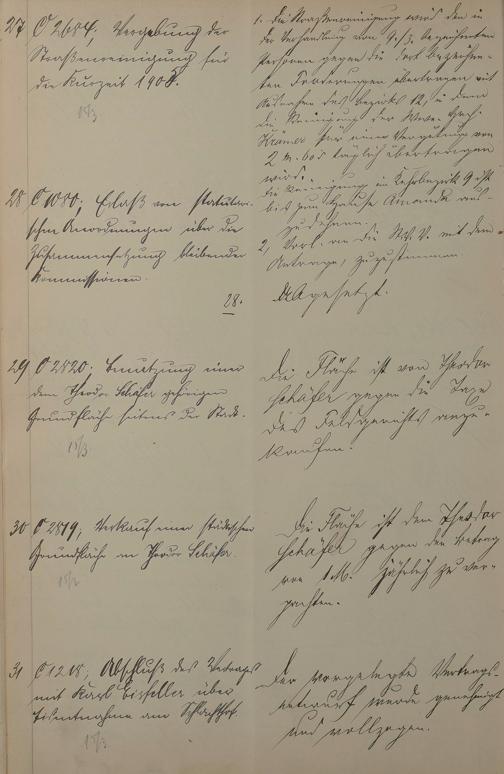 27 C 2684, Vergebung der
Straßenreinigung für
die Kurzeit 1908.
15/3
1. Die Straßenreinigung wird den in
der Verhandlung vom 4./3. bezeichneten
Personen gegen die dort bezeichne-
ten Forderungen übertragen mit
Ausnahme des Bezirks 12, in dem
die Reinigung der Wwe. Hch.
Krämer für eine Vergütung von
2 M. 60 täglich übertragen
wird.
Die Reinigung in Kehrbezirk 9 ist
bis zum Hause Amanda aus-
zudehnen.
2, Vorl. an die St.V.V. mit dem
Antrage, zuzustimmen.
28 C 1080, Erlaß von statutari-
schen Anordnungen über die
Zusammensetzung bleibender
Kommissionen.
28.
Abgesetzt.
29 C 2820, Benutzung einer
dem Theodor Schäfer gehörigen
Grundfläche seitens der Stadt.
15/3
Die Fläche ist von Theodor
Schäfer gegen die Taxe
des Feldgerichts anzu-
kaufen.
30 C 2819, Verkauf einer städtischen
Grundfläche an Theodor Schäfer.
15/3
Die Fläche ist dem Theodor
Schäfer gegen den Betrag
von 1 M. jährlich zu ver-
pachten.
31 C 1218, Abschluß des Vertrages
mit Karl Eisfeller über
Eisentnahme am Schlachthof.
15/3
Der vorgelegte Vertrags-
entwurf wurde genehmigt
und vollzogen.